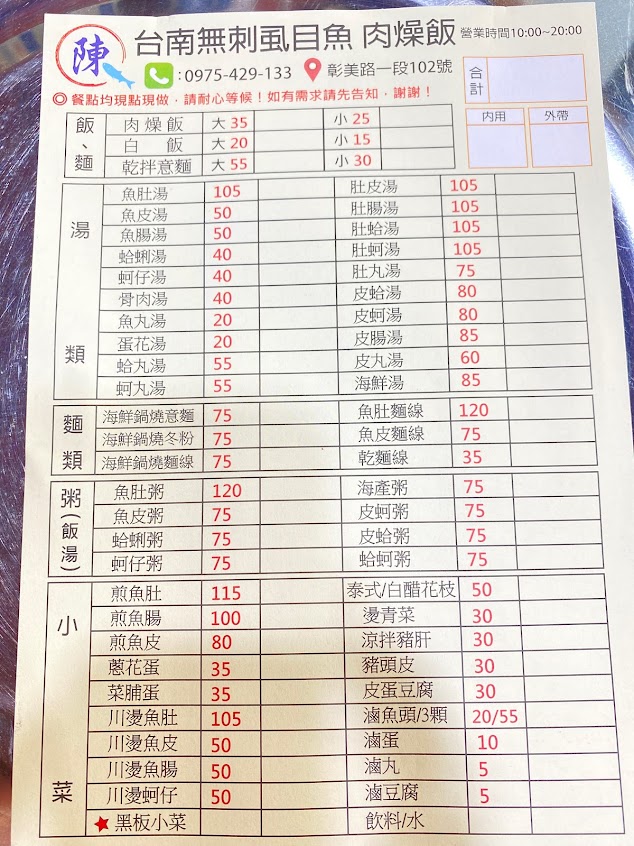 陳
台南無刺虱目魚 肉燥飯 營業時間10:00~20:00
:0975-429-133 彰美路一段102號
◎ 餐點均現點現做，請耐心等候！如有需求請先告知，謝謝！
合計
內用 外帶
飯、麵
肉燥飯 大 35 小 25
白飯 大 20 小 15
乾拌意麵 大 55 小 30
湯類
魚肚湯 105 肚皮湯 105
魚皮湯 50 肚腸湯 105
魚腸湯 50 肚蛤湯 105
蛤蜊湯 40 肚蚵湯 105
蚵仔湯 40 肚丸湯 75
骨肉湯 40 皮蛤湯 80
魚丸湯 20 皮蚵湯 80
蛋花湯 20 皮腸湯 85
蛤丸湯 55 皮丸湯 60
蚵丸湯 55 海鮮湯 85
麵類
海鮮鍋燒意麵 75 魚肚麵線 120
海鮮鍋燒冬粉 75 魚皮麵線 75
海鮮鍋燒麵線 75 乾麵線 35
粥(飯湯)
魚肚粥 120 海產粥 75
魚皮粥 75 皮蚵粥 75
蛤蜊粥 75 皮蛤粥 75
蚵仔粥 75 蛤蚵粥 75
小菜
煎魚肚 115 泰式/白醋花枝 50
煎魚腸 100 燙青菜 30
煎魚皮 80 涼拌豬肝 30
蔥花蛋 35 豬頭皮 30
菜脯蛋 35 皮蛋豆腐 30
川燙魚肚 105 滷魚頭/3顆 20/55
川燙魚皮 50 滷蛋 10
川燙魚腸 50 滷丸 5
川燙蚵仔 50 滷豆腐 5
★ 黑板小菜 飲料/水